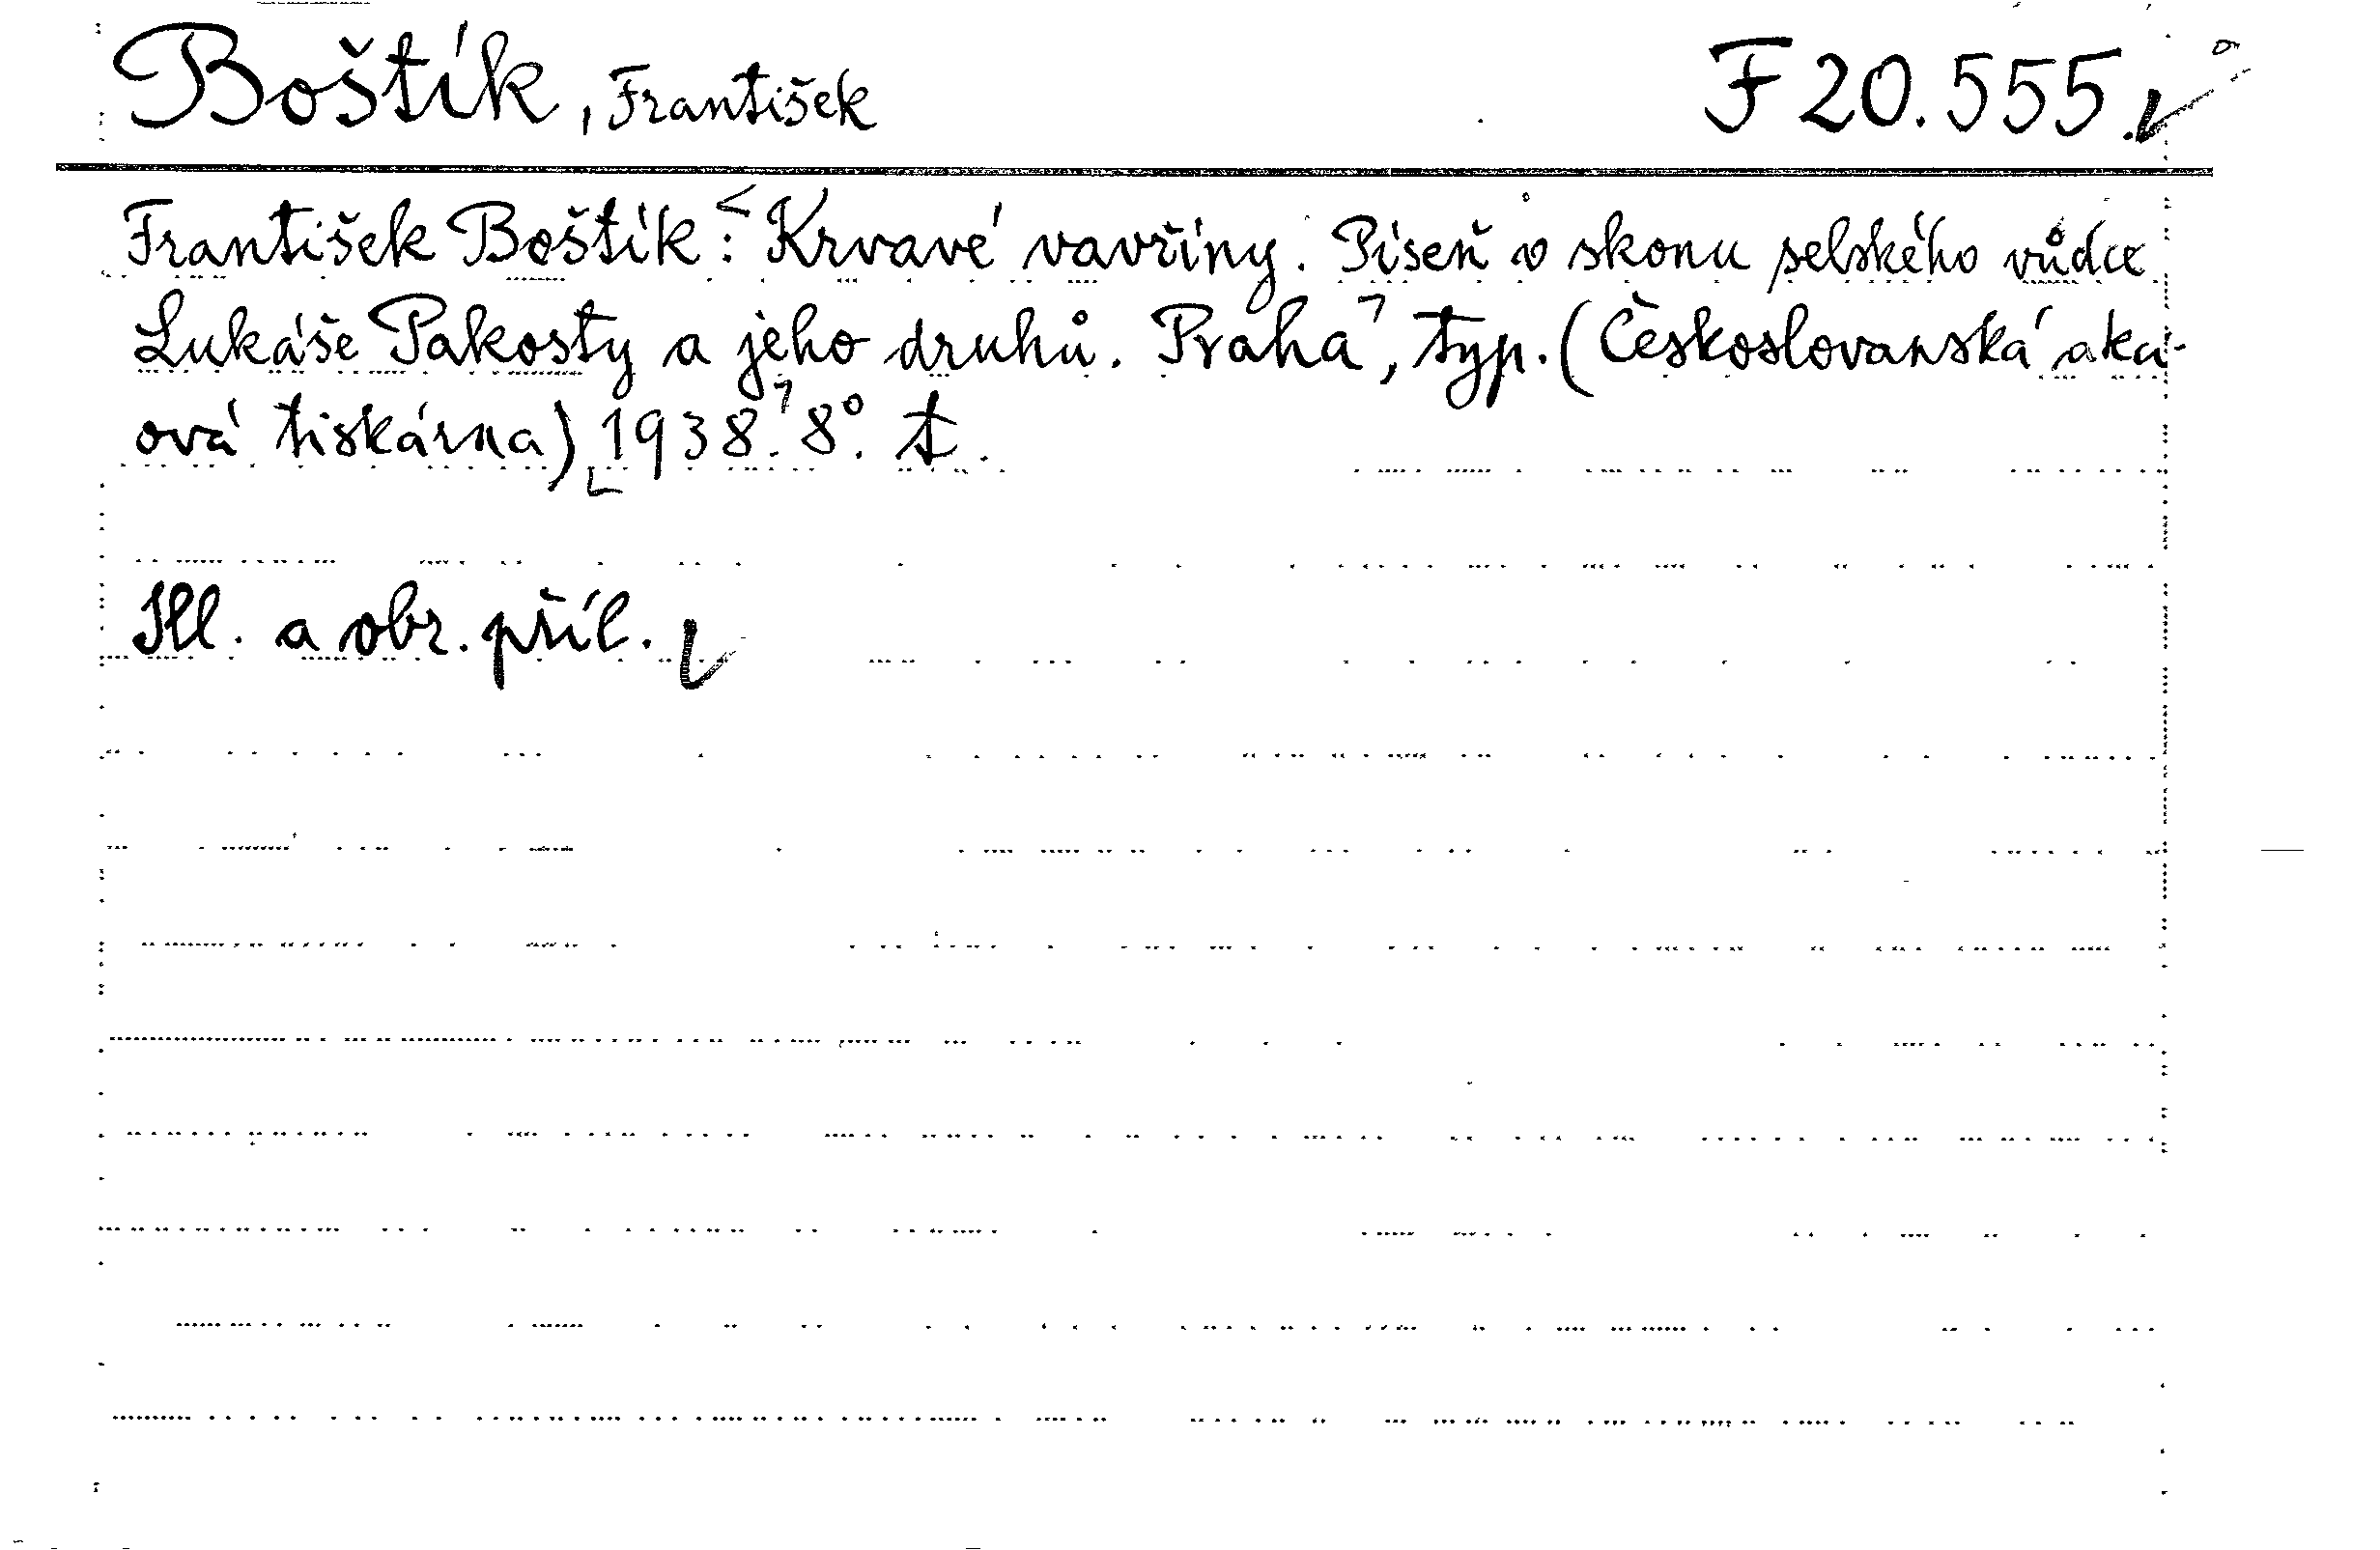 Boštík, František F 20.555.
František Boštík: Krvavé vavřiny. Píseň o skonu selského vůdce
Lukáše Pakosty a jeho druhů. Praha, typ. (Českoslovanská aka-
ová tiskárna) 1938. 8°. t.
Ill. a obr. příl.